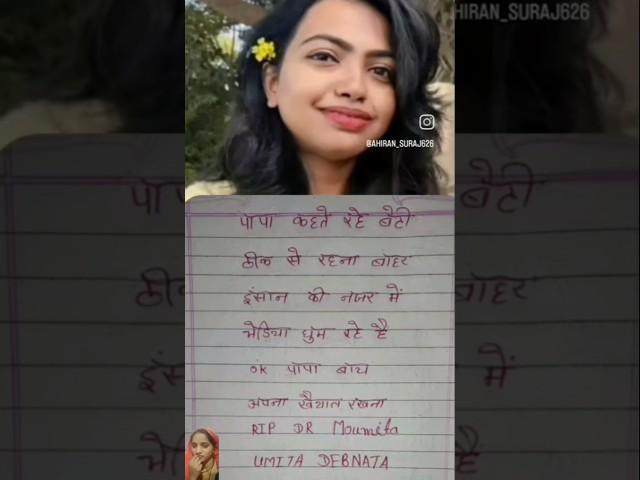 HIRAN_SURAJ626
@AHIRAN_SURAJ626
पापा कहते रहे बेटी
ठीक से रहना बाहर
इंसान की नजर में
भेड़िया घुम रहे है
ok पापा बाय
अपना खैयाल रखना
RIP DR Moumita
UMITA DEBNATA